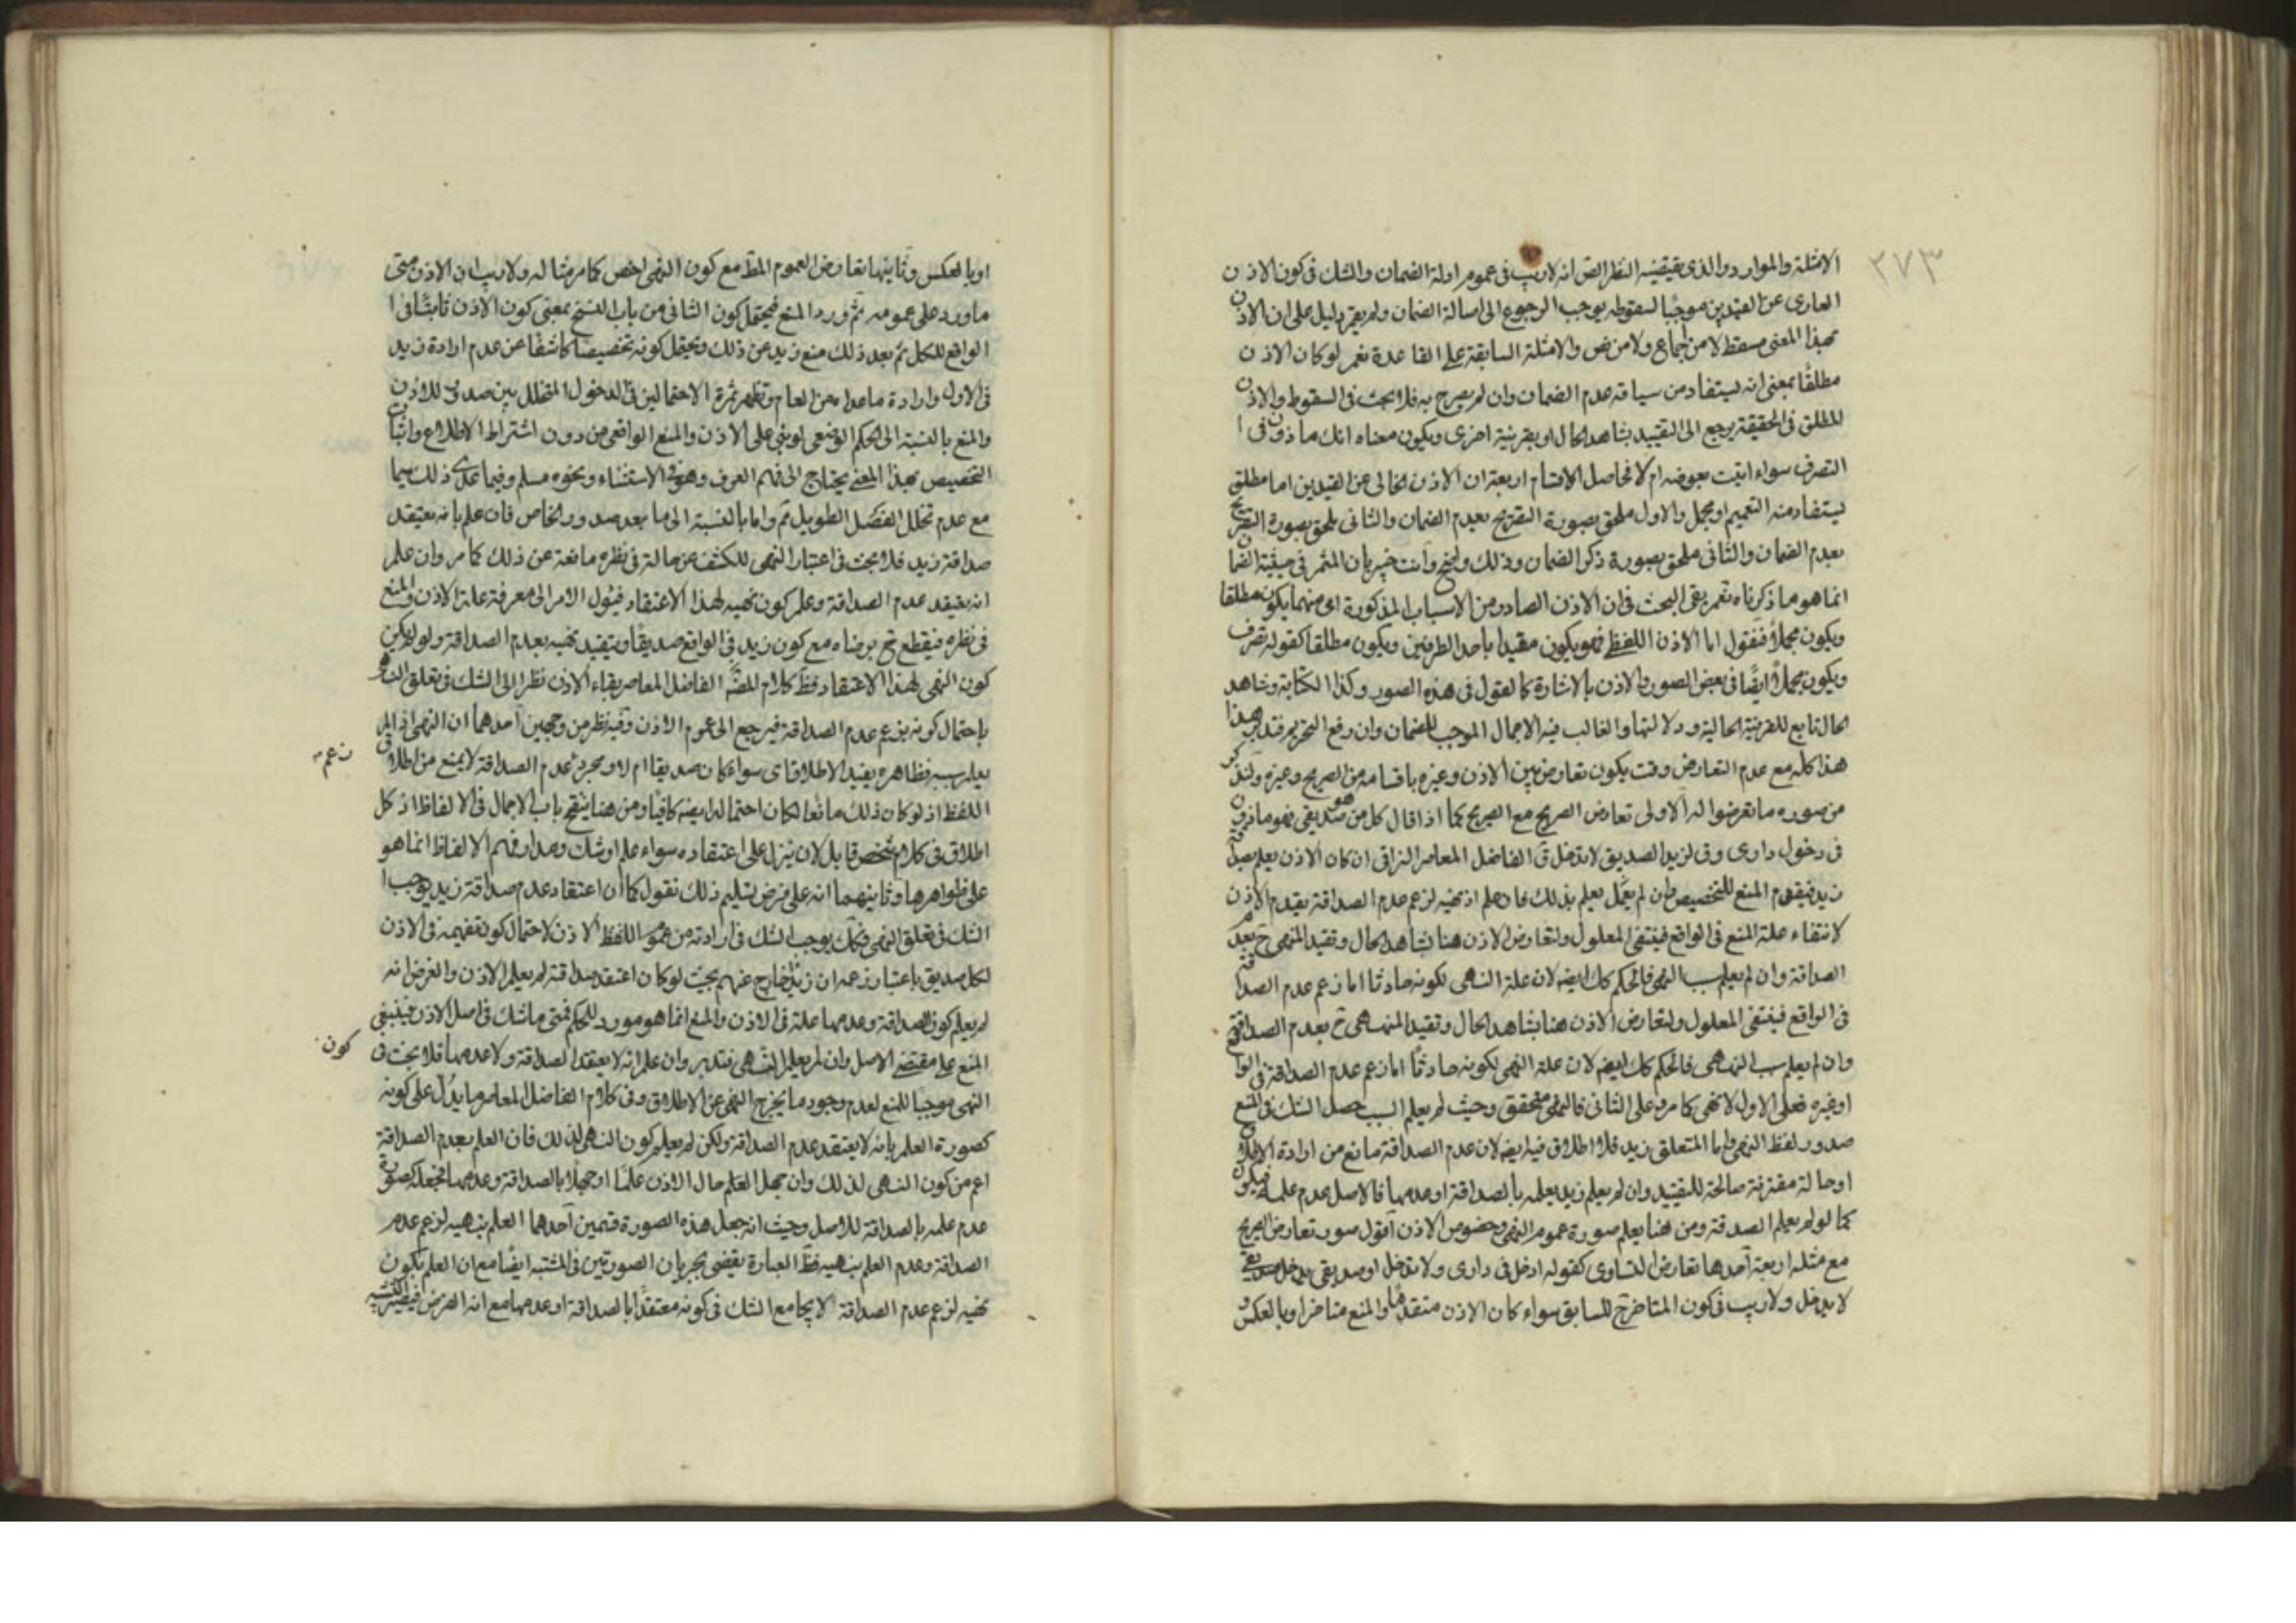 ٢٧٣
الامثلة والموارد والذى يقتضيه النظر انه لاريب فى عموم ادلة الضمان والشك فى كون الاذن
العارى عن القيدين موجبا لسقوطه يوجب الرجوع الى اصالة الضمان ولم يقم دليل على ان الاذن
بهذا المعنى مسقط لا من اجماع ولا من نص والامثلة السابقة على القاعدة نعم لو كان الاذن
مطلقا بمعنى انه يستفاد من سياقه عدم الضمان وان لم يصرح به فلا بحث فى السقوط والاذن
المطلق فى الحقيقة يرجع الى التقييد بشاهد الحال او بقرينة اخرى ويكون معناه انك ماذون فى ا
التصرف سواء اتيت بعوضه ام لا فحاصل الاقسام اربعة ان الاذن الخالى عن القيدين اما مطلق
يستفاد منه التعميم او مجمل والاول ملحق بصورة التصريح بعدم الضمان والثانى ملحق بصورة التصريح
بعدم الضمان والثانى ملحق بصورة ذكر الضمان وذلك واضح وانت خبير بان المثمر فى حيثية الضمان
انما هو ما ذكرناه نعم بقى البحث فى ان الاذن الصادر من الاسباب المذكورة اى منهما يكون مطلقا
ويكون مجملا فنقول اما الاذن اللفظى فهو يكون مقيدا باحد الطرفين ويكون مطلقا كقوله تصرف
ويكون مجملا ايضا فى بعض الصور والاذن بالاشارة كالقول فى هذه الصور وكذا الكتابة وشاهد
الحال تابع للقرينة الحالية ودلالتها والغالب فيه الاجمال الموجب للضمان وان رفع التحريم فتدبر هذا
هذا كله مع عدم التعارض وقد يكون تعارض بين الاذن وغيره باقسامه من الصريح وغيره ولنذكر
من صوره ما تعرضوا له الاولى تعارض الصريح مع الصريح كما اذا قال كل من هو صديقى فهو ماذون
فى دخول دارى وقى لزيد الصديق لا تدخل قى الفاضل المعاصر النراقى ان كان الاذن يعلم بصداقة
زيد فيقدم المنع للتخصيص وان لم يعلم بذلك فان علم ان نهيه لزعم عدم الصداقة يقدم الاذن
لانتفاء علة المنع فى الواقع فينتفى المعلول ولتعارض الاذن هنا بشاهد الحال وتقيد المنهى ح بعدم
الصداقة وان لم يعلم سبب النهى فالحكم كك ايضه لان علة النهى لكونه حادثا اما زعم عدم الصداقة
فى الواقع فينتفى المعلول ولتعارض الاذن هنا بشاهد الحال وتقيد المنهى ح بعدم الصداقة
وان لم يعلم سبب النهى فالحكم كك ايضه لان علة النهى لكونه حادثا اما زعم عدم الصداقة فى الواقع
او غيره فعلى الاول لا نهى كما مر وعلى الثانى فالنهى متحقق وحيث لم يعلم السبب حصل الشك فى المنع
صدور لفظ النهى واما المتعلق بزيد فلا اطلاق فيه ايضه لان عدم الصداقة مانع من ارادة الاطلاق
او حالة مقترنة صالحة للتقييد وان لم يعلم زيد يعلمه بالصداقة او عدمها فالاصل عدم علمه فيكون
كما لو لم يعلم الصدقة ومن هنا يعلم صورة عموم النهى وخصوص الاذن اقول صور تعارض الصريح
مع مثله اربعة احدها تعارض التساوى كقوله ادخل فى دارى ولا تدخل او صديقى يدخل صديقى
لا يدخل ولا ريب فى كون المتاخر للسابق سواء كان الاذن متقدما والمنع متاخرا او بالعكس
او بالعكس وثانيها تعارض العموم المطـ مع كون النهى اخص كما مر مثاله ولا ريب ان الاذن متى
ما ورد على عمومه ثم ورد المنع فيحتمل كون الثانى من باب النسخ بمعنى كون الاذن ثابتا فى ا
الواقع للكل ثم بعد ذلك منع زيد عن ذلك ويحتمل كونه تخصيصا كاشفا عن عدم ارادة زيد
فى الاول وارادة ما عداه من العام وتظهر ثمرة الاحتمالين فى الدخول المتخلل بين صدور الاذن
والمنع بالنسبة الى الحكم الوضعى لو بنى على الاذن والمنع الواقعى من دون اشتراط الاطلاع واثبات
التخصيص بهذا المعنى يحتاج الى فهم العرف وهو فى الاستثناء ونحوه مسلم وفيما عدى ذلك سيما
مع عدم تخلل الفصل الطويل ثم واما بالنسبة الى ما بعد صدور الخاص فان علم بانه يعتقد
صداقة زيد فلا بحث فى اعتبار النهى للكشف عن حالة فى نظره مانعة عن ذلك كما مر وان علم
انه يعتقد عدم الصداقة وعلم كون نهيه لهذا الاعتقاد فيئول الامر الى معرفة علة الاذن والمنع
فى نظره فيقطع ح برضاه مع كون زيد فى الواقع صديقا ويتقيد نهيه بعدم الصداقة ولو لم يكن
كون النهى لهذا الاعتقاد فظ كلام الفاضل المعاصر بقاء الاذن نظرا الى الشك فى تعلق النهى
باحتمال كونه بزعم عدم الصداقة فيرجع الى عموم الاذن وفيه نظر من وجهين احدهما ان النهى اذا لم
يعلم سببه فظاهره يفيد الاطلاق اى سواء كان صديقا ام لا ومجرد عدم الصداقة لا يمنع من اطلاق
زعم
اللفظ اذ لو كان ذلك مانعا لكان احتماله ايضه كافيا ومن هنا ينفتح باب الاجمال فى الالفاظ اذ كل
اطلاق فى كلام شخص قابل لان ينزل على اعتقاده سواء علم او شك ومدار فهم الالفاظ انما هو
على ظواهرها وثانيهما انه على فرض تسليم ذلك نقول كما ان اعتقاد عدم صداقة زيد يوجب ا
الشك فى تعلق النهى فكك يوجب الشك فى ارادته من عموم اللفظ الاذن لاحتمال كون تعميمه فى الاذن
لكل صديق باعتبار زعمه ان زيدا خارج عنهم بحيث لو كان اعتقد صداقته لم يعلم الاذن والغرض انه
لم يعلم كون الصداقة وعدمها علة فى الاذن والمنع انما هو مورد للحكم فمتى ما شك فى اصل الاذن فينبغى
المنع على مقتضى الاصل وان لم يعلم النهى فتدبر وان علم انه لا يعتقد الصداقة ولا عدمها فلا بحث فى
كون
النهى موجبا للمنع لعدم وجود ما يخرج النهى عن الاطلاق وفى كلام الفاضل المعاصر ما يدل على كونه
كصورة العلم بانه لا يعتقد عدم الصداقة ولكن لم يعلم كون النهى لذلك فان العلم بعدم الصداقة
اعم من كون النهى لذلك وان جهل العلم حال الاذن علما او جهلا بالصداقة وعدمها فجعله كصورة
عدم علمه بالصداقة للاصل وحيث انه جعل هذه الصورة قسمين احدهما العلم بنهيه لزعم عدم
الصداقة وعدم العلم بنهيه فظ العبارة يقضى بجريان الصورتين فى المشتبه ايضا مع ان العلم بكون
نهيه لزعم عدم الصداقة لا يجامع الشك فى كونه معتقدا بالصداقة او عدمها مع انه الفرض